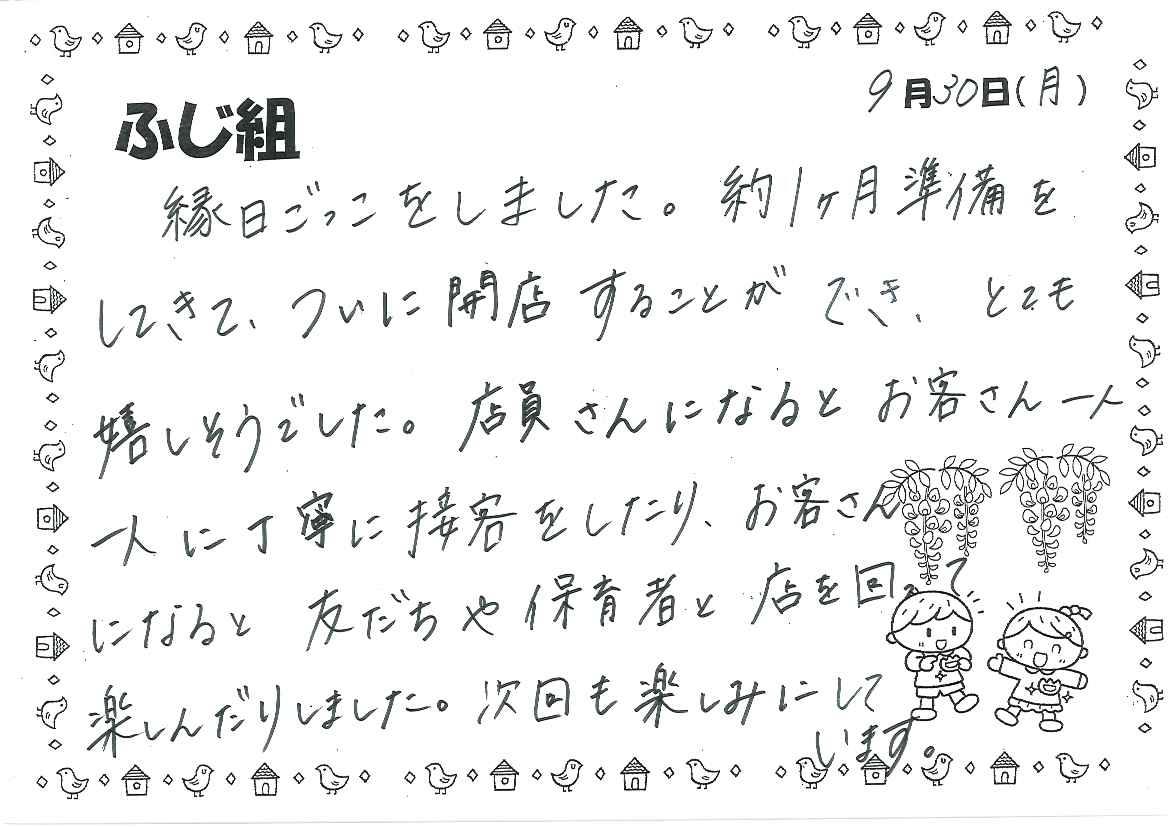 9月30日(月)
ふじ組
縁日ごっこをしました。約1ヶ月準備を
してきて、ついに開店することができ、とても
嬉しそうでした。店員さんになるとお客さん一人
一人に丁寧に接客をしたり、お客さん
になると友だちや保育者と店を回って
楽しんだりしました。次回も楽しみにして
います。